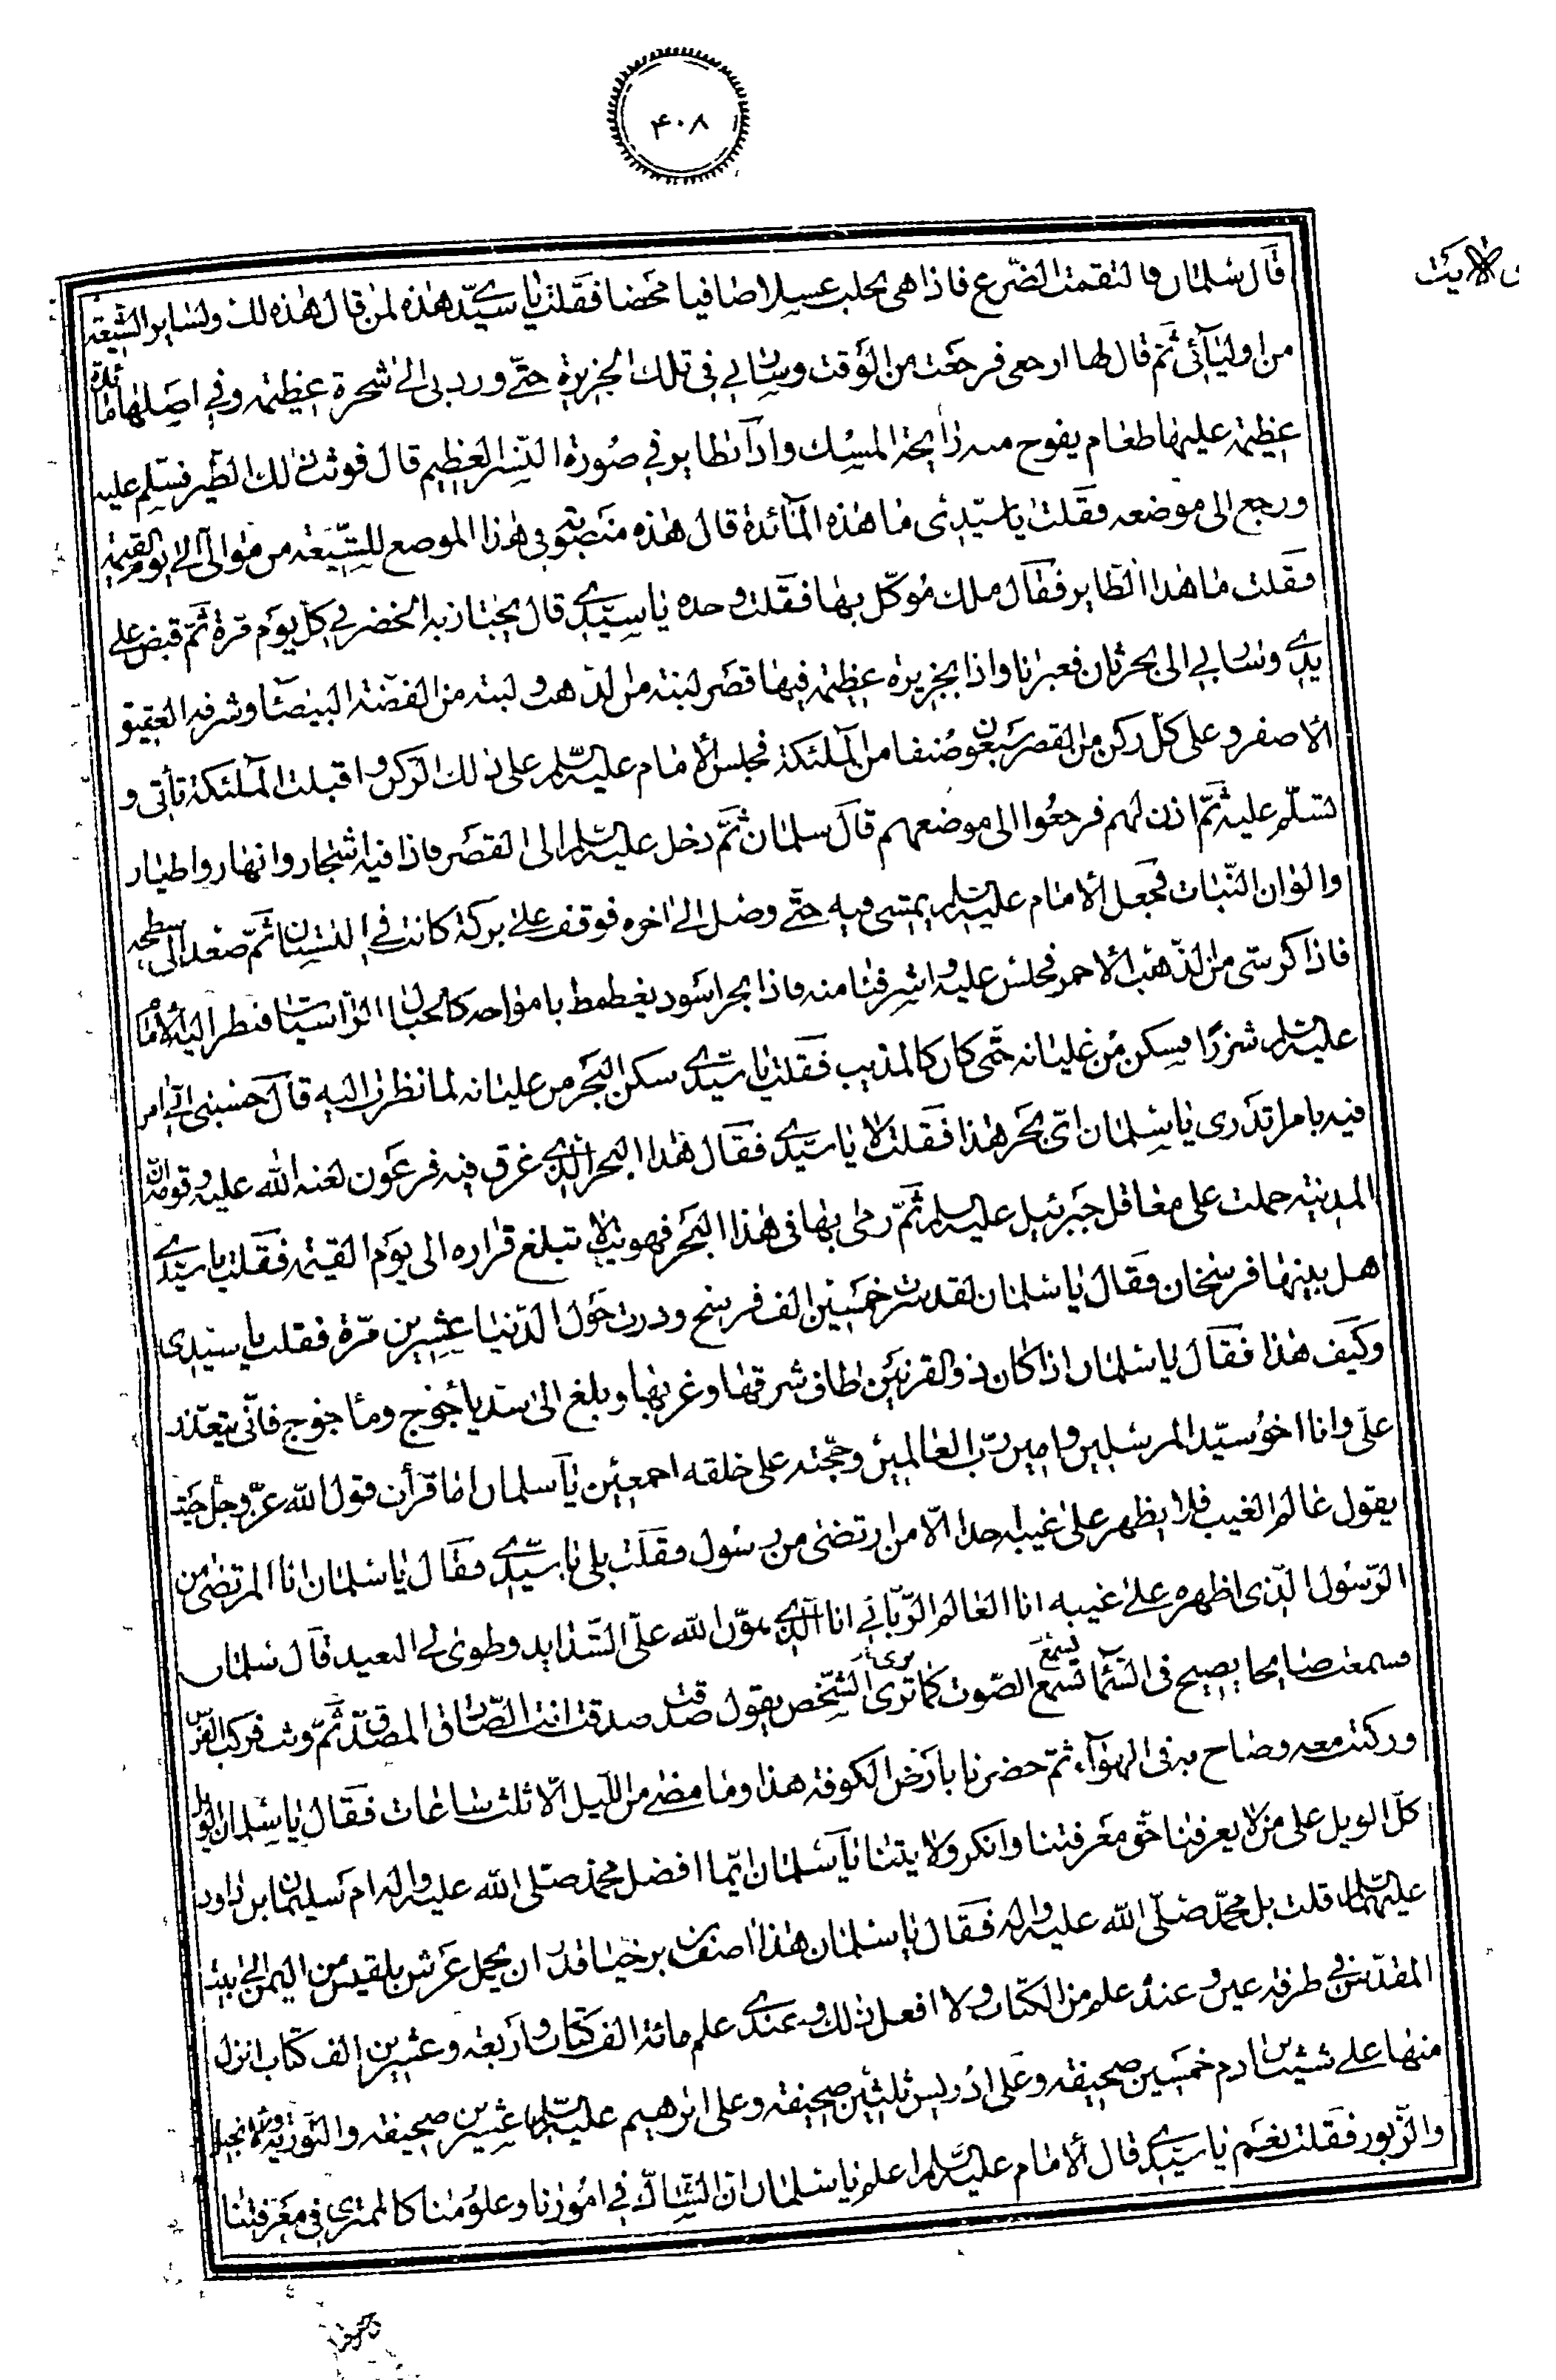 ۴۰۸
قال سلمان فالتقمت الضّرع فاذا هی تحلب عسلا صافیا محضا فقلت یا سیّدی هذه لمن قال هذه لك ولسایر الشّیعة
من اولیآئی ثمّ قال لها ارجعی فرجعت من الوقت وسار بی فی تلك الجزیرة حتّی ورد بی الی شجرة عظیمة وفی اصلها مائدة
عظیمة علیها طعام یفوح منه رایحة المسك واذا بطایر فی صورة النّسر العظیم قال فوثب ذلك الطّیر فسلّم علیه
ورجع الی موضعه فقلت یا سیّدی ما هذه المآئدة قال هذه منصوبة فی هذا الموضع للشّیعة من موالیّ الی یوم القیمة
فقلت ما هذا الطّایر فقال ملك موکّل بها فقلت وحده یا سیّدی قال یجتاز به الخضر فی کلّ یوم مرة ثمّ قبض علی
یدی وسار بی الی بحر ثان فعبرنا واذا بجزیرة عظیمة فیها قصر لبنة من الذّهب ولبنة من الفضّة البیضآء وشرفه العقیق
الاصفر وعلی کلّ رکن من القصر سبعون صنفا من الملئکة فجلس الامام علیه السّلم علی ذلك الرّکن واقبلت الملئکة تأتی و
تسلّم علیه ثمّ اذن لهم فرجعوا الی موضعهم قال سلمان ثمّ دخل علیه السّلم الی القصر فاذا فیه اشجار وانهار واطیار
والوان النّبات فجعل الامام علیه السّلم یمشی فیه حتّی وصل الی اخره فوقف علی برکة کانت فی البستان ثمّ صعد الی سطحه
فاذا کرسی من الذّهب الاحمر فجلس علیه واشرفنا منه فاذا بحر اسود یغطمط بامواجه کالجبال الرّاسیات فنظر الیه الامام
علیه السّلم شزرًا فسکن من غلیانه حتّی کان کالمذنب فقلت یا سیّدی سکن البحر من غلیانه لما نظرت الیه قال حسبنی انّی امر
فیه بامر اتدری یا سلمان ایّ بحر هذا فقلت لا یا سیّدی فقال هذا البحر الّذی غرق فیه فرعون لعنه الله علیه وقومه انّ
المدینة حملت علی معاقل جبرئیل علیه السّلم ثمّ رمی بها فی هذا البحر فهویت لا تبلغ قراره الی یوم القیمة فقلت یا سیّدی
هل بینهما فرسخان فقال یا سلمان لقد سرت خمسین الف فرسخ ودرت حول الدّنیا عشرین مرّة فقلت یا سیّدی
وکیف هذا فقال یا سلمان اذا کان ذو القرنین طاف شرقها وغربها وبلغ الی سد یأجوج ومأجوج فانّی یتعذر
علی وانا اخو سیّد المرسلین وامین ربّ العالمین وحجّته علی خلقه اجمعین یا سلمان اما قرأت قول الله عزّ وجل حیث
یقول عالم الغیب فلا یظهر علی غیبه احدا الّا من ارتضی من رسول فقلت بلی یا سیّدی فقال یا سلمان انا المرتضی من
الرّسول الّذی اظهره علی غیبه انا العالم الرّبّانی انا الّذی هوّن الله علیّ الشّداید وطوی لی البعید قال سلمان
فسمعت صایحا یصیح فی السّمآء نسمع الصّوت کما تری الشّخص یقول صدقت صدقت انت الصّادق المصدّق ثمّ وثب فرکب الفرس
ورکبت معه وصاح به فی الهوآء ثمّ حضرنا بارض الکوفة هذا وما مضی من اللّیل الّا ثلث ساعات فقال یا سلمان الویل
کلّ الویل علی من لا یعرفنا حقّ معرفتنا وانکر ولایتنا یا سلمان ایّما افضل محمّد صلّی الله علیه واله ام سلیمان بن داود
علیهما السّلم قلت بل محمّد صلّی الله علیه واله فقال یا سلمان هذا اصف بن برخیا قدر ان یحمل عرش بلقیس من الیمن الی بیت
المقدّس فی طرفة عین وعنده علم من الکتاب ولا افعل ذلك وعندی علم مائة الف کتاب واربعة وعشرین الف کتاب انزل
منها علی شیث بن ادم خمسین صحیفة وعلی ادریس ثلثین صحیفة وعلی ابرهیم علیه السّلم عشرین صحیفة والتّوریة والانجیل
والزّبور فقلت نعم یا سیّدی قال الامام علیه السّلم اعلم یا سلمان انّ الشّاكّ فی امورنا وعلومنا کالممتری فی معرفتنا